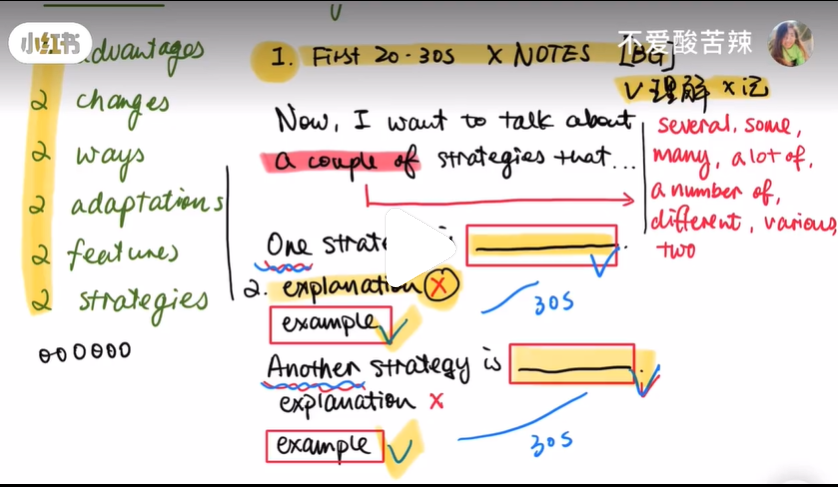 小红书
不爱酸苦辣
advantages
2 changes
2 ways
2 adaptations
2 features
2 strategies
000000
1. First 20-30s X NOTES [BG]
V理解 X记
Now, I want to talk about
a couple of strategies that...
several, some,
many, a lot of,
a number of,
different, various,
two
One strate
2. explanation X
example
30s
Another strategy is
explanation X
example
30s